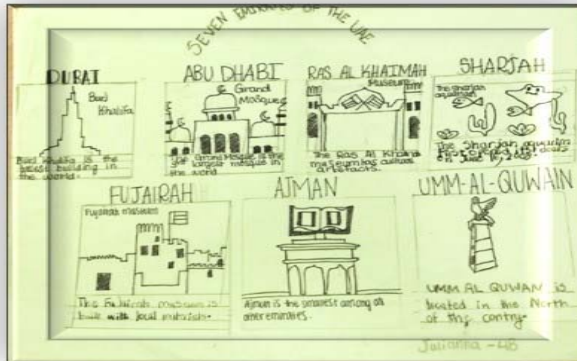 SEVEN EMIRATES OF THE UAE
DUBAI
Burj
Khalifa
Burj Khalifa is the
tallest building in
the world.
ABU DHABI
Grand
Mosque
The Grand Mosque is the
largest mosque in
the world
RAS AL KHAIMAH
Museum
The Ras Al Khaimah
museum has cultural
artefacts.
SHARJAH
The sharjah
aquarium
The Sharjah aquarium
first opened its doors
FUJAIRAH
Fujairah museum
The Fujairah museum is
built with local materials.
AJMAN
Ajman is the smallest among all
other emirates.
UMM-AL-QUWAIN
UMM AL QUWAN is
located in the North
of the contry.
Julianna - 4B